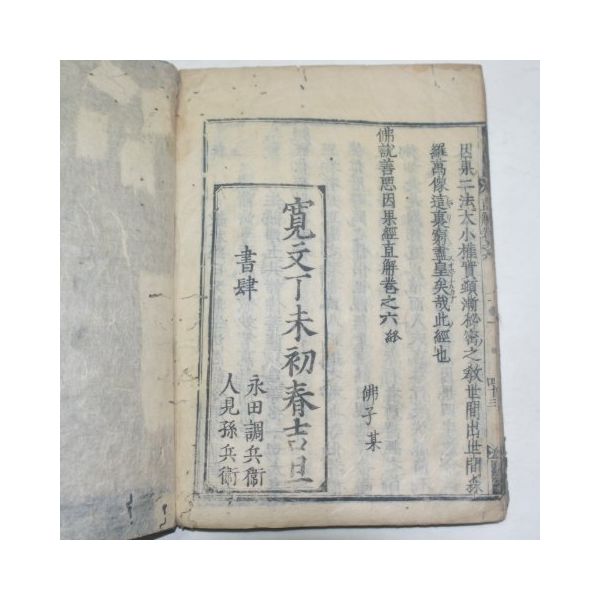 因果二法大小権實頓漸秘密之教世間出世間森
羅萬像遠裏窮盡皇矣哉此經也
佛説善惡因果經直解卷之六終
佛子某
寛文丁未初春吉旦
書肆
永田調兵衞
人見孫兵衞
四十三